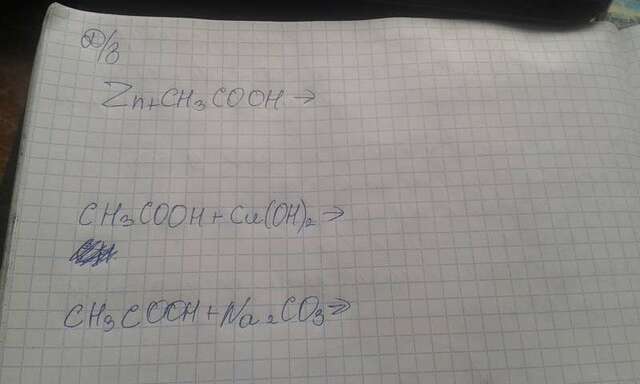 Д/З
Zn+CH3COOH→
CH3COOH+Cu(OH)2→
CH3COOH+Na2CO3→